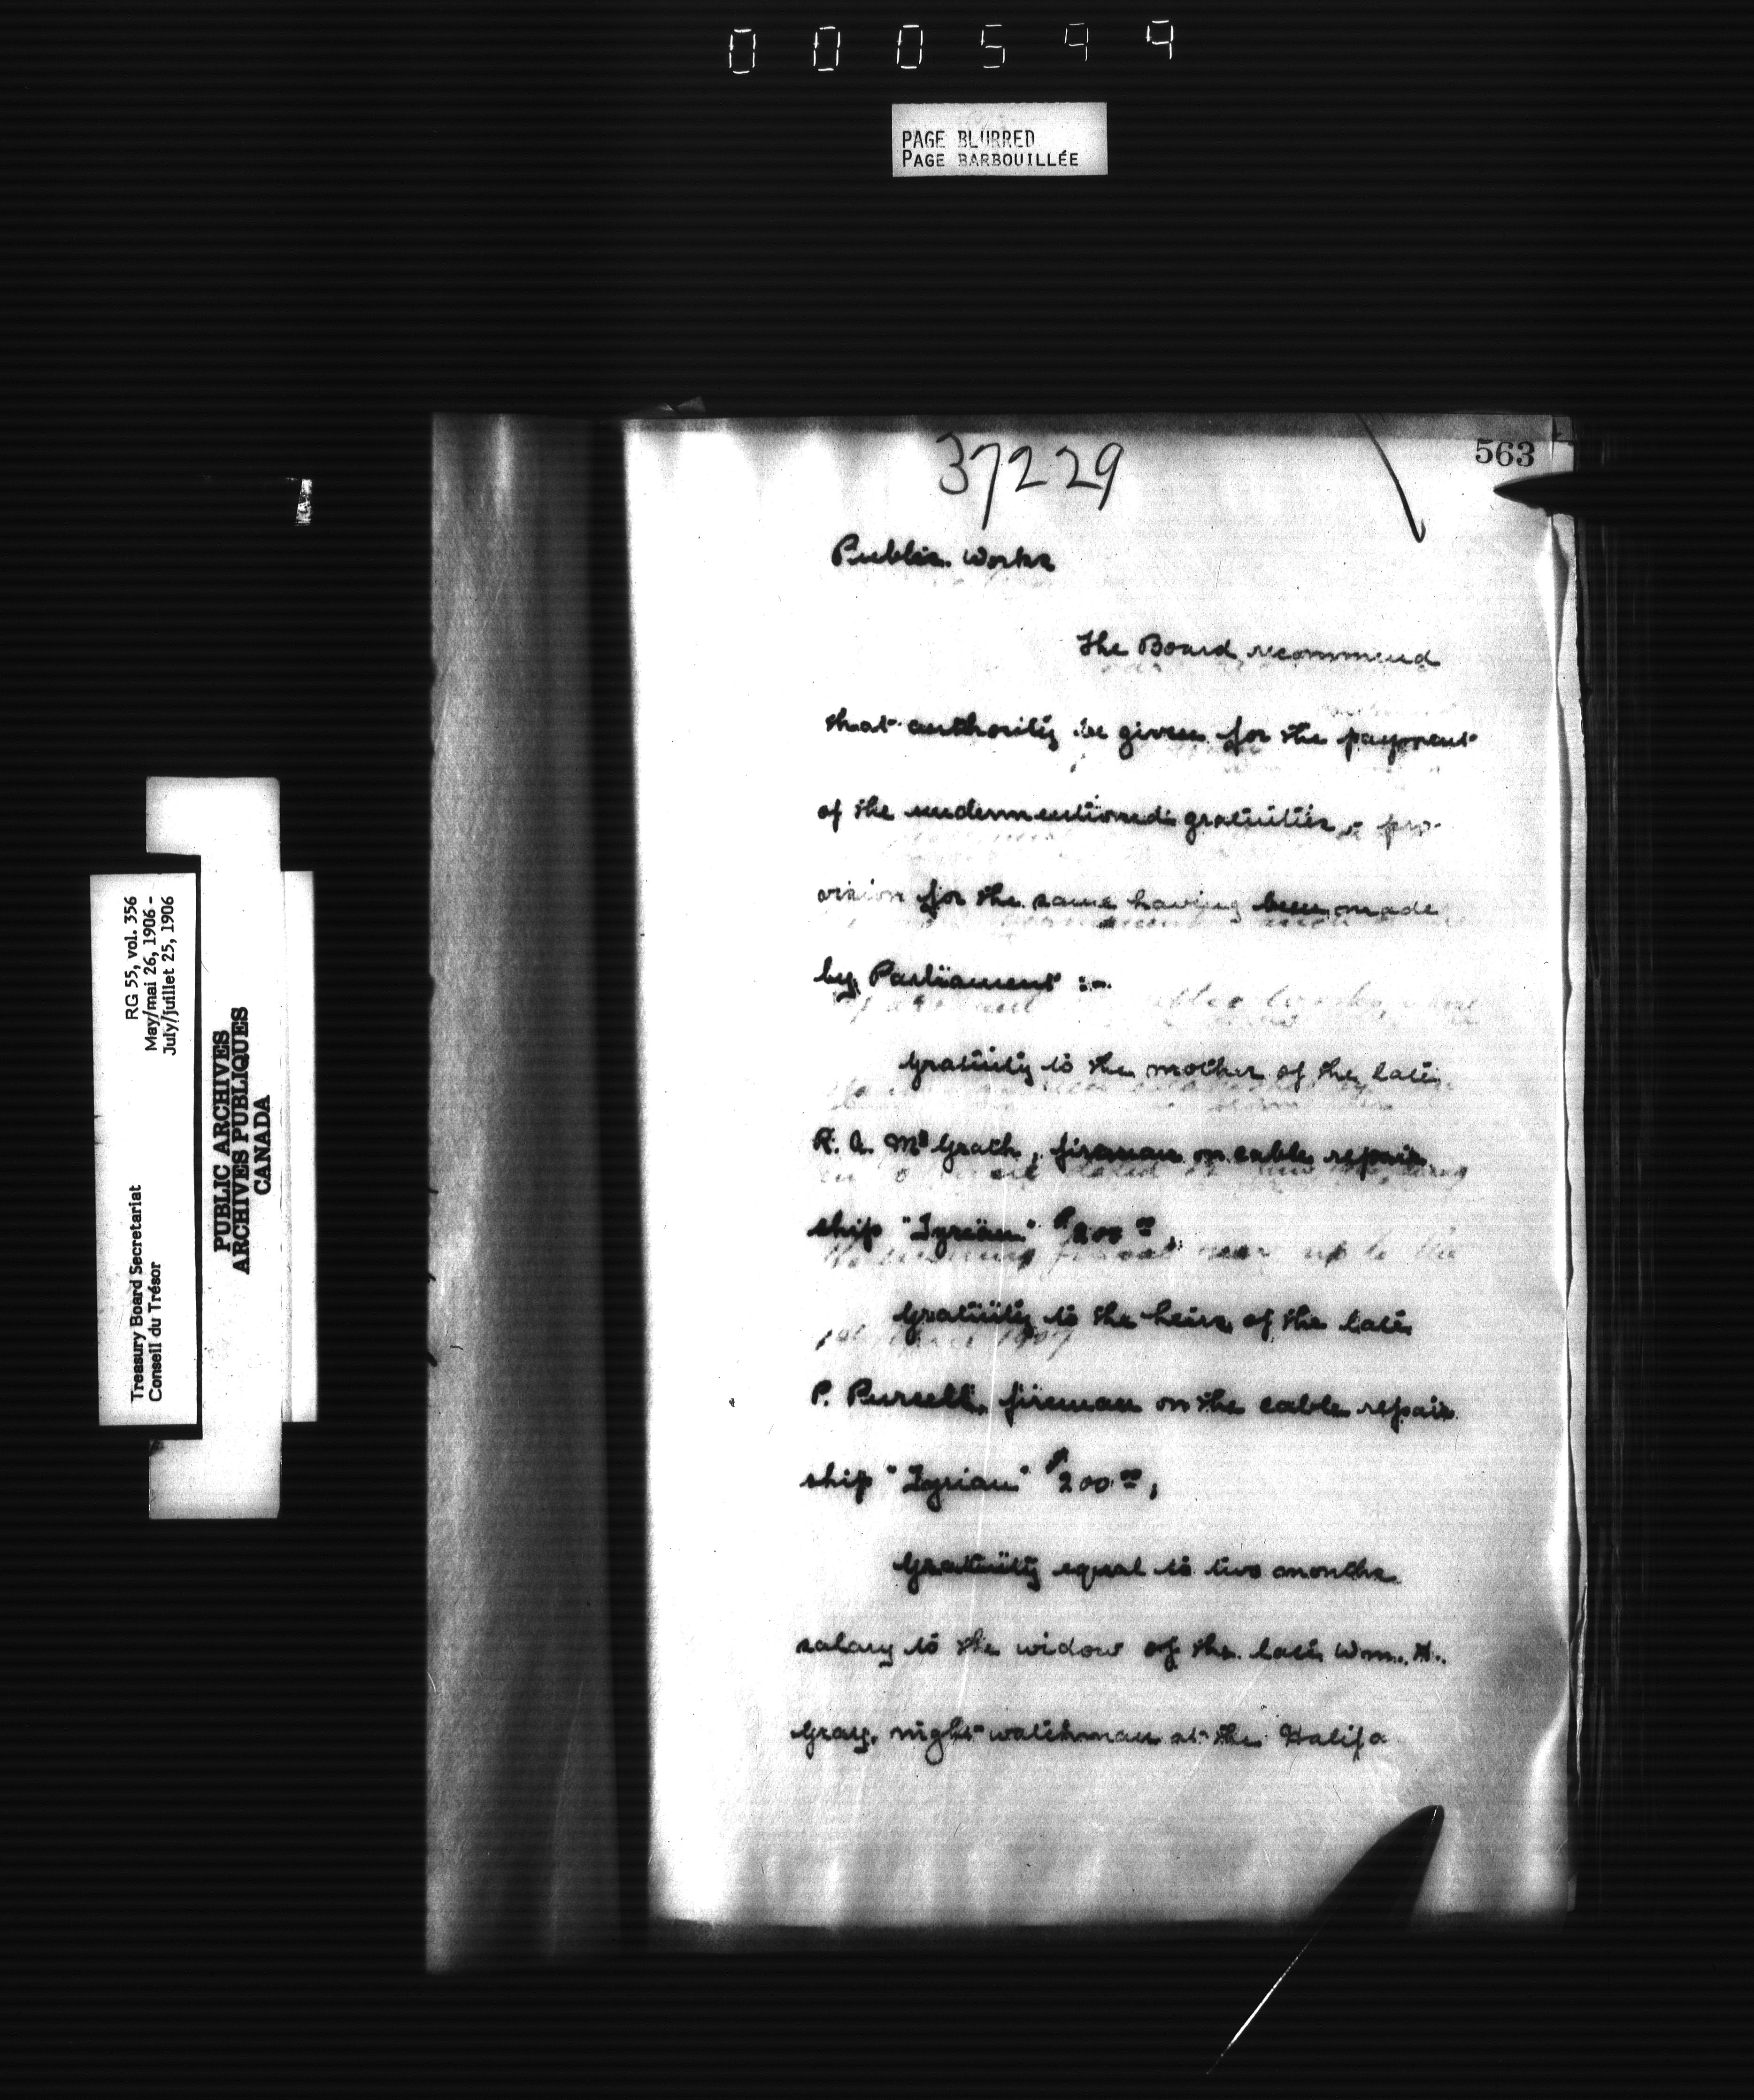 000599
PAGE BLURRED
PAGE BARBOUILLÉE
563
37229
Public Works
The Board recommend
that authority be given for the payment
of the undermentioned gratuities, pro-
vision for the same having been made
by Parliament :-
Gratuity to the mother of the late
R. A. McGrath, fireman on cable repair
ship "Tyrian" $200 00,
Gratuity to the heirs of the late
P. Purcell, fireman on the cable repair
ship "Tyrian" $200 00,
Gratuity equal to two months
salary to the widow of the late Wm. H.
Gray, night watchman at the Halifa
RG 55, vol. 356
May/mai 26, 1906 -
July/juillet 25, 1906
Treasury Board Secretariat
Conseil du Trésor
PUBLIC ARCHIVES
ARCHIVES PUBLIQUES
CANADA